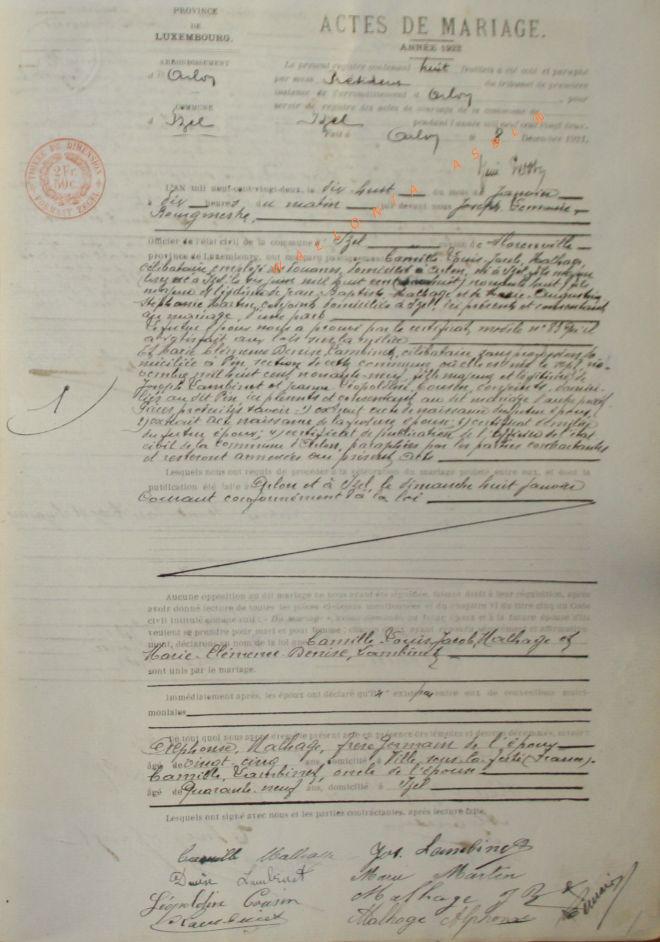 PROVINCE
DE
LUXEMBOURG.
ACTES DE MARIAGE.
ANNÉE 1922
ARRONDISSEMENT
d'Arlon
COMMUNE
d'Izel
Le présent registre contenant huit feuillets a été coté et paraphé
par nous Président du tribunal de première
instance de l'arrondissement d'Arlon pour
servir de registre des actes de mariage de la commune de
Izel pendant l'année mil neuf cent vingt deux.
Fait à Arlon le 8 Décembre 1921.
TIMBRE DE DIMENSION
2 Fr.
50 C.
FORMAT
WALLONIA ASBL ©
L'AN mil neuf-cent-vingt-deux, le dix huit du mois de janvier
à dix heures du matin par devant nous Joseph
Bourgmestre,
Officier de l'état civil de la commune d'Izel canton de Florenville
province de Luxembourg, ont comparu Camille Louis Jacob, Malhage,
célibataire, employé des douanes, domicilié à Arlon, né à Izel, fils majeur
majeur et légitime de Jean-Baptiste Malhage et de Marie
Stéphanie Martin, conjoints domiciliés à Izel, ici présents et consentant
au mariage, d'une part
Le futur époux nous a prouvé par le certificat, modèle n° qu'il
a satisfait aux lois sur la milice
Et Marie Clémence Denise, Lambinet, célibataire, sans profession, do-
miciliée à Pin, section de cette commune où elle est née le sept
fille majeure et légitime de
Joseph Lambinet et Jeanne Léopoldine Cousin, conjoints, domici-
liés au dit Pin, ici présents et consentant au dit mariage d'autre part
Pièces produites savoir: 1) extrait acte de naissance du futur époux,
2) extrait acte naissance de la future épouse, 3) certificat de milice
du futur époux; 4) certificat de publication de l'officier de l'état
civil de la commune d'Arlon, paraphées par les parties contractantes
et resteront annexées au présent acte
Lesquels nous ont requis de procéder à la célébration du mariage projeté entre eux, et dont la
publication été faite à Arlon et à Izel, le dimanche huit janvier
courant conformément à la loi
Aucune opposition au dit mariage ne nous ayant été signifiée, faisant droit à leur réquisition, après
avoir donné lecture de toutes les pièces ci-dessus mentionnées et du chapitre VI du titre cinq du Code
civil intitulé
veulent se prendre pour mari et pour femme
ment, déclarons au nom de la loi que Camille Louis Jacob, Malhage et
Marie-Clémence-Denise, Lambinet
sont unis par le mariage.
Immédiatement après, les époux ont déclaré qu'il n'existe pas entre eux de conventions matri-
moniales
De tout quoi nous avons dressé le présent acte en présence des témoins
Alphonse, Malhage, frère germain de l'époux
âgé de vingt cinq ans, domicilié à Ville, sous la ferté (France).
Camille, Lambinet, oncle de l'épouse
âgé de Quarante-neuf ans, domicilié à Izel
Lesquels ont signé avec nous et les parties contractantes, après lecture faite.
Camille Malhage
Jos. Lambinet
Denise Lambinet
Marie Martin
Léopoldine Cousin
Malhage J B
C Lambinet
Malhage Alphonse